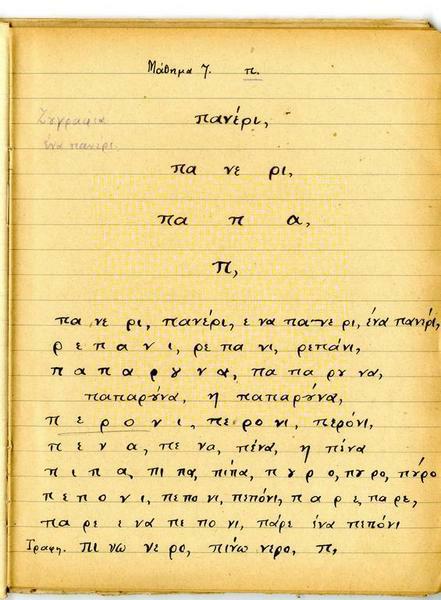 Μάθημα 7. π.
πανέρι,
Ζυγραφια
ένα πανερι.
πα νε ρι,
πα π α,
π,
πα νε ρι, πανέρι, ε να πα νε ρι, ένα πανέρι,
ρ ε π α ν ι, ρε πα νι, ρεπάνι,
π α π α ρ υ ν α, πα πα ρυ να,
παπαρύνα, η παπαρύνα,
π ε ρ ο ν ι, πε ρο νι, περόνι,
π ε ν α, πε να, πένα, η πένα
π ι π α, πι πα, πίπα, π υ ρ ο, πυ ρο, πύρο
π ε π ο ν ι, πε πο νι, πεπόνι, π α ρ ε, πα ρε,
πα ρε ε να πε πο νι, πάρε ένα πεπόνι
Γραφη. πι νω νε ρο, πίνω νερο, π,